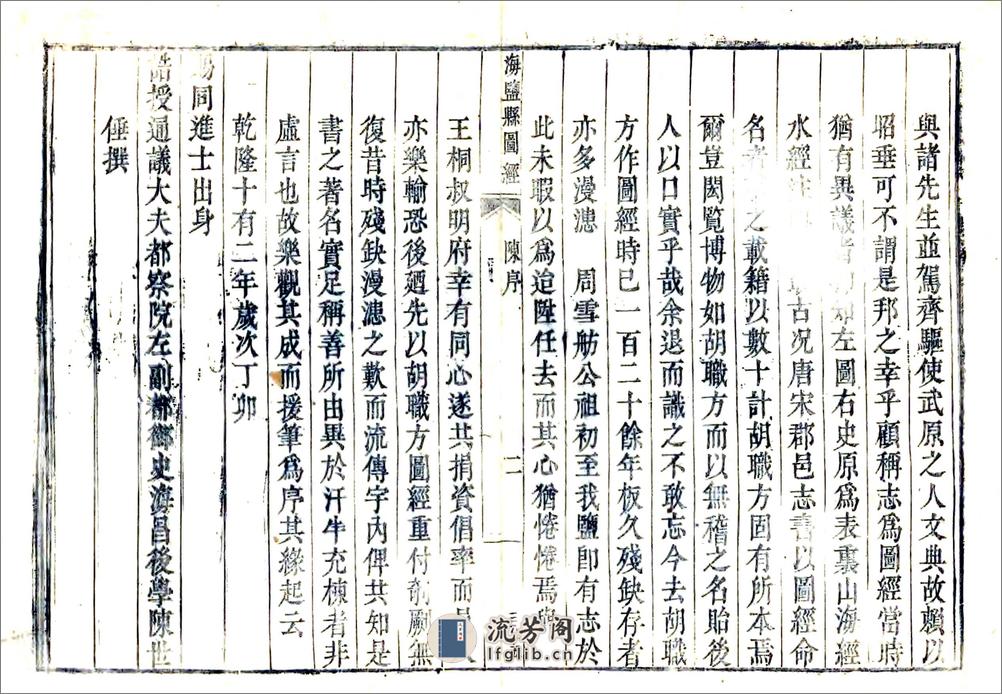 與諸先生並駕齊驅使武原之人文典故賴以
昭垂可不謂是邦之幸乎顧稱志爲圖經當時
猶有異議者 知左圖右史原爲表裏山海經
水經 古况唐宋郡邑志書以圖經命
名者 之載籍以數十計胡職方固有所本焉
爾豈閎覽博物如胡職方而以無稽之名貽後
人以口實乎哉余退而識之不敢忘今去胡職
方作圖經時已一百二十餘年板久殘缺存者
亦多漫漶 周雪舫公祖初至我鹽卽有志於
此未暇以爲迨陞任去而其心猶惓惓焉
海鹽縣圖經 陳序 二
王桐叔明府幸有同心遂共捐資倡率而
亦樂輸恐後廼先以胡職方圖經重付剞劂無
復昔時殘缺漫漶之歎而流傳宇內俾共知是
書之著名實足稱善所由異於汗牛充棟者非
虛言也故樂觀其成而援筆爲序其緣起云
乾隆十有二年歲次丁卯
賜同進士出身
誥授通議大夫都察院左副都御史海昌後學陳世
倕撰
流芳阁
lfglib.cn